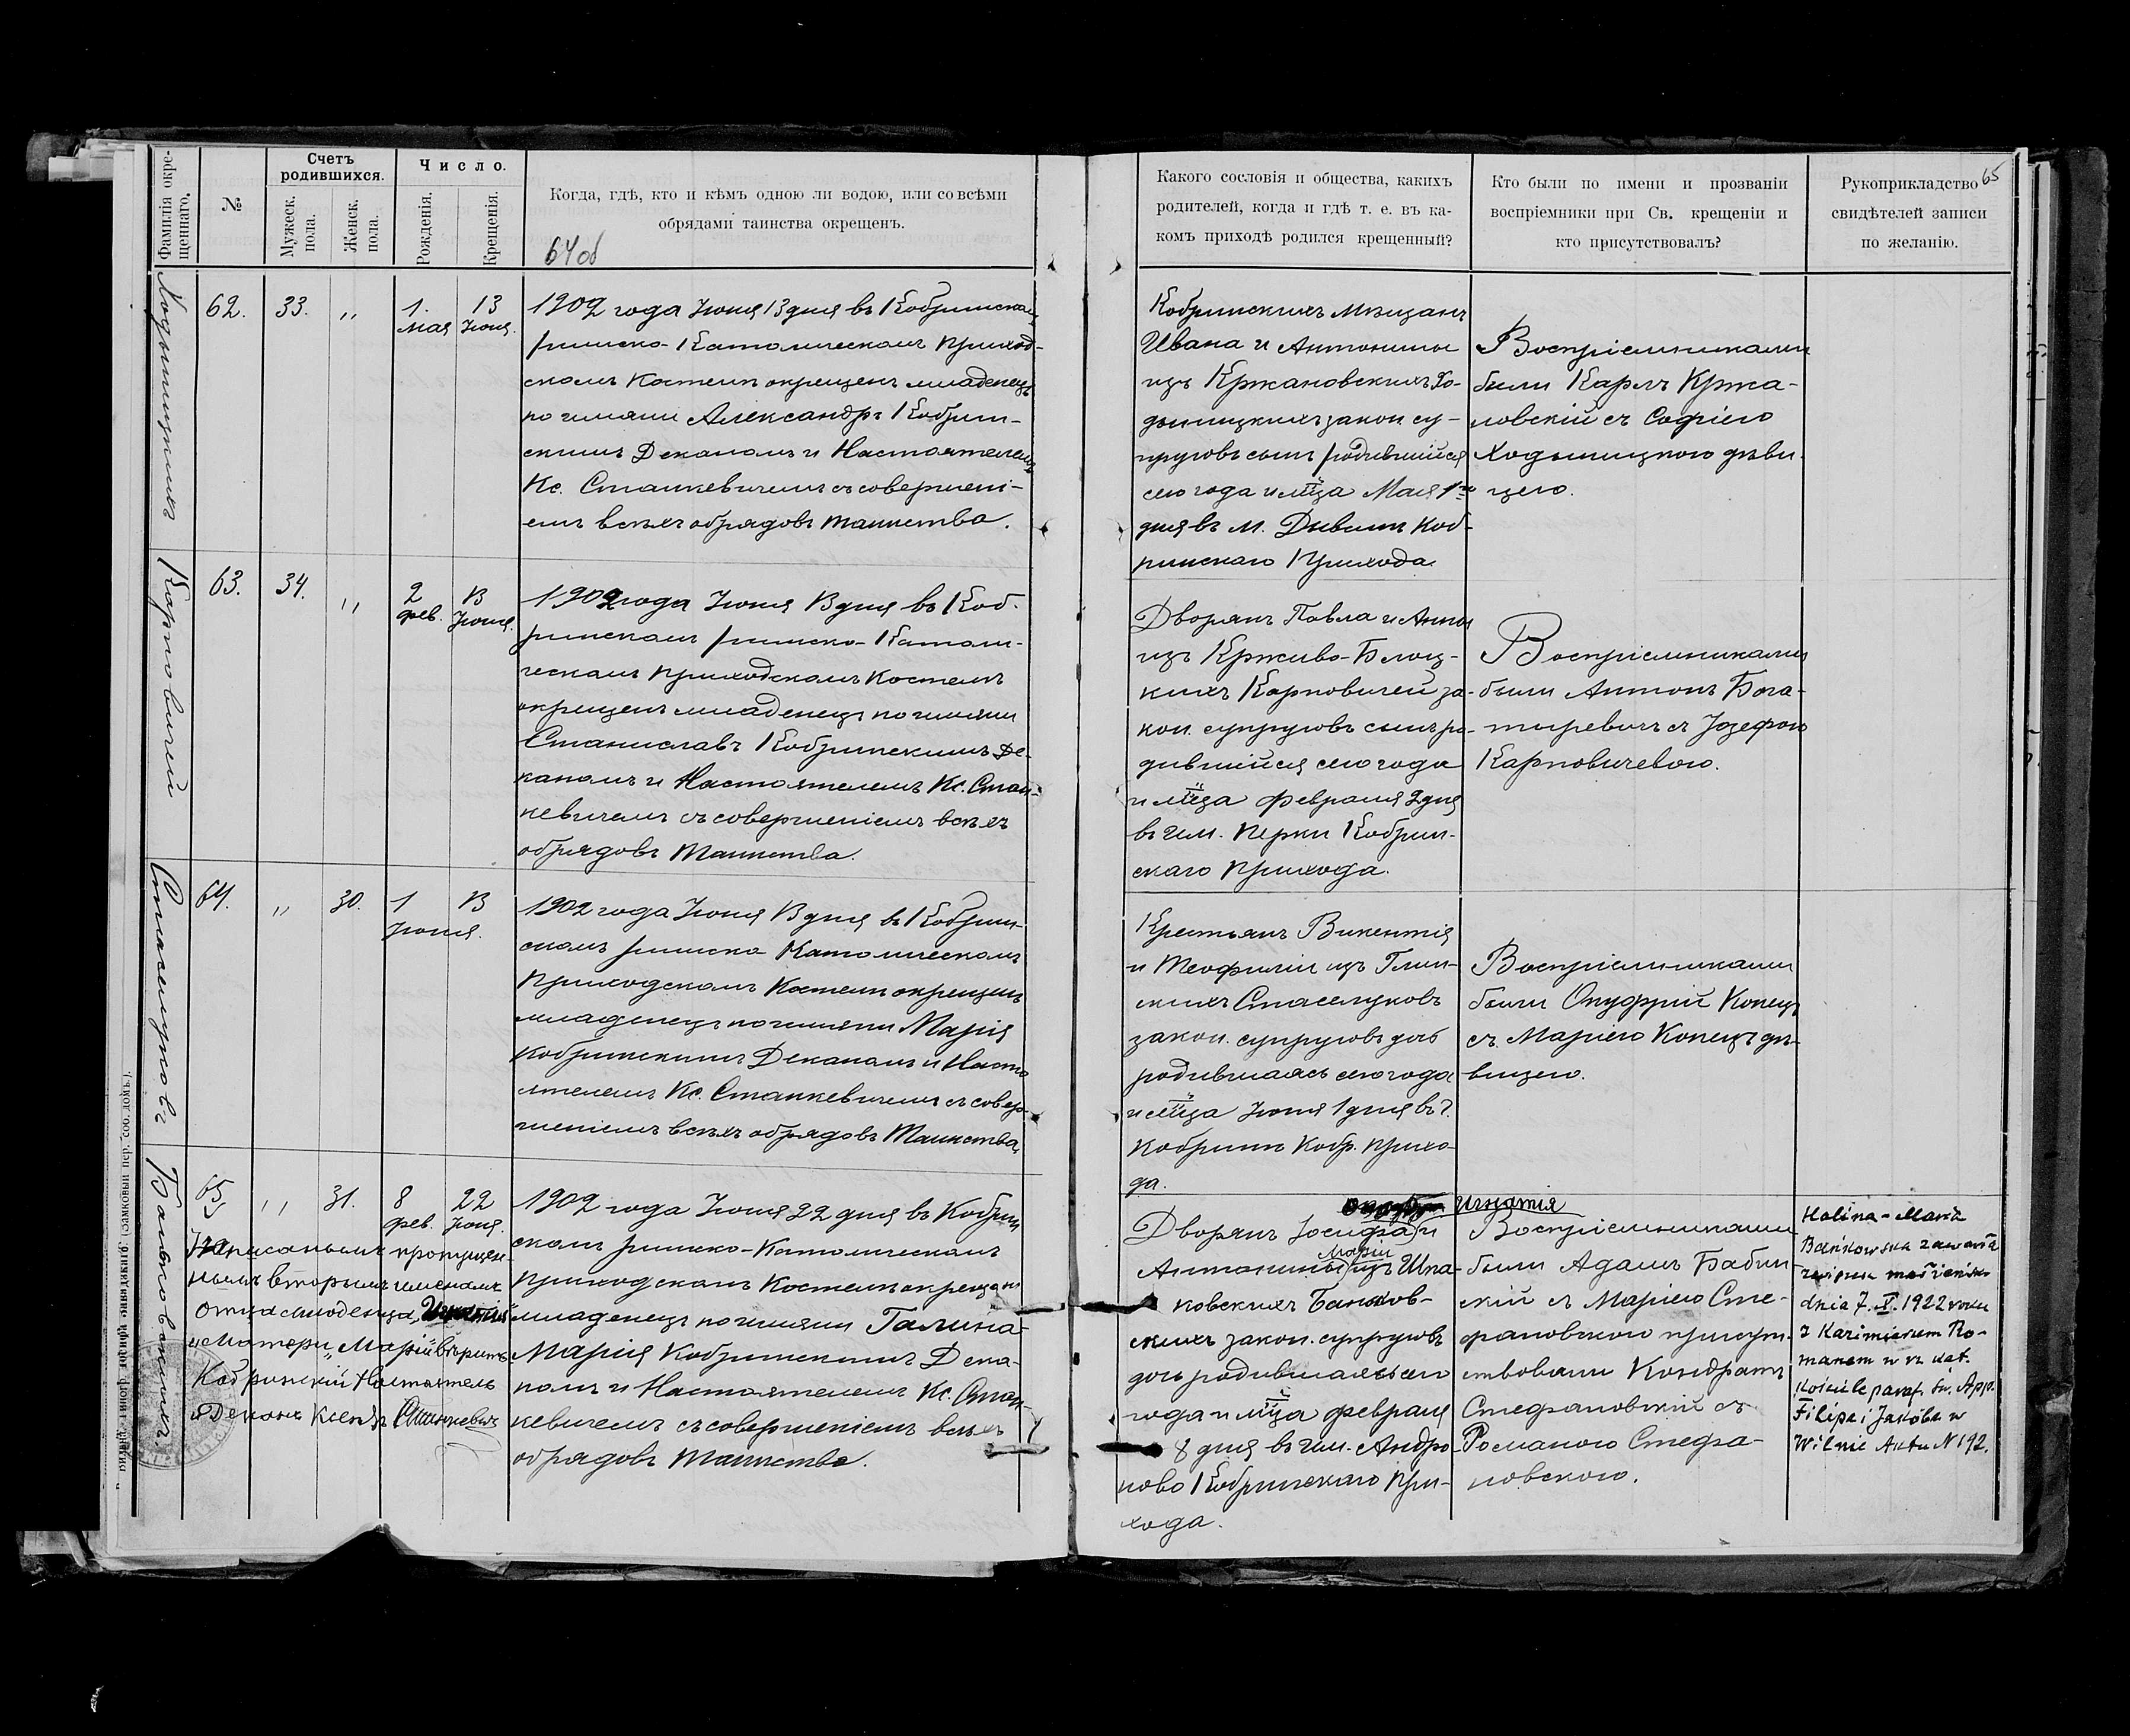 Фамилія окре-
щеннаго.
№
Счетъ
родившихся.
Мужеск.
пола.
Женск.
пола.
Число.
Рожденія.
Крещенія.
Когда, гдѣ, кто и кѣмъ одною ли водою, или со всѣми
обрядами таинства окрещенъ.
64 об
Какого сословія и общества, какихъ
родителей, когда и гдѣ т. е. въ ка-
комъ приходѣ родился крещенный?
Кто были по имени и прозванію
воспріемники при Св. крещеніи и
кто присутствовалъ?
Рукоприкладство
свидѣтелей записи
по желанію.
65
Ходыницкихъ
62.
33.
„
1.
мая
13
Іюня.
1902 года Іюня 13 дня въ Кобринскомъ
римско-Католическомъ приход-
скомъ Костелѣ окрещенъ младенецъ
по имени Александръ Кобрин-
скимъ Деканомъ и Настоятелемъ
Кс. Станкевичемъ съ совершені-
емъ всѣхъ обрядовъ таинства.
Кобринскихъ мѣщанъ
Ивана и Антонины
изъ Кржановскихъ Хо-
дыницкихъ закон су-
пруговъ сынъ родившійся
сего года и мца Мая 1го
дня въ м. Дивинѣ Коб-
ринскаго Прихода
Воспріемниками
были Карлъ Кржа-
новскій съ Софіею
Ходыницкою дѣви-
цею.
Карповичей
63.
34.
„
2
фев.
13
Іюня.
1902 года Іюня 13 дня въ Коб-
ринскомъ римско-Католи-
ческомъ приходскомъ Костелѣ
окрещенъ младенецъ по имени
Станиславъ Кобринскимъ Де-
каномъ и Настоятелемъ Кс. Стан-
кевичемъ съ совершеніемъ всѣхъ
обрядовъ Таинства.
Дворянъ Павла и Анны
изъ Крживо-Блоц-
кихъ Карповичей за-
кон. супруговъ сынъ ро-
дившійся сего года
и мца февраля 2 дня
въ им. Перки Кобрин-
скаго прихода.
Воспріемниками
были Антонъ Бога-
тыревичъ съ Іозефою
Карповичевою.
Стаселуковъ
64.
„
30.
1
Іюня.
13
1902 года Іюня 13 дня въ Кобрин-
скомъ римско Католическомъ
Приходскомъ Костелѣ окрещенъ
младенецъ по имени Марія
Кобринскимъ Деканомъ и Насто
ятелемъ Кс. Станкевичемъ съ совер-
шеніемъ всѣхъ обрядовъ Таинства.
Крестьянъ Викентія
и Теофиліи изъ Глин-
скихъ Стаселуковъ
закон. супруговъ дочь
родившаяся сего года
и мца Іюня 1 дня въ г.
Кобринѣ Кобр. прихо-
да.
Воспріемниками
были Онуфрій Конецъ
съ Маріею Конецъ дѣ-
вицею.
Баньковскихъ.
65
„
31.
8
фев.
22
Іюня.
Написаннымъ пропущен-
нымъ вторымъ именамъ
отца младенца „Игнатій"
и матери „Марія" вѣрить
Кобринскій Настоятель
и Деканъ Ксендзъ Станкевичъ
1902 года Іюня 22 дня въ Кобрин
скомъ римско-Католическомъ
приходскомъ Костелѣ окрещенъ
младенецъ по имени Галина-
Марія Кобринскимъ Дека-
номъ и Настоятелемъ Кс. Стан-
кевичемъ съ совершеніемъ всѣхъ
обрядовъ Таинства.
Игнатія
Дворянъ Іосифа и
Маріи
Антонины изъ Шпа-
ковскихъ Баньков-
скихъ закон. супруговъ
дочь родившаяся сего
года и мца февраля
8 дня въ им. Андро
ново Кобринскаго При-
хода.
Воспріемниками
были Адамъ Бабин-
скій съ Маріею Сте-
фановскою присут-
ствовали Кондратъ
Стефановскій съ
Романою Стефа-
новскою.
Halina-Maria
Bańkowska zawarła
związek małżeński
dnia 7.X.1922 roku
z Kazimierzem Ro-
manem w rz. kat.
kościele paraf. św. App.
Filipa i Jakóba w
Wilnie Aktu N 192.